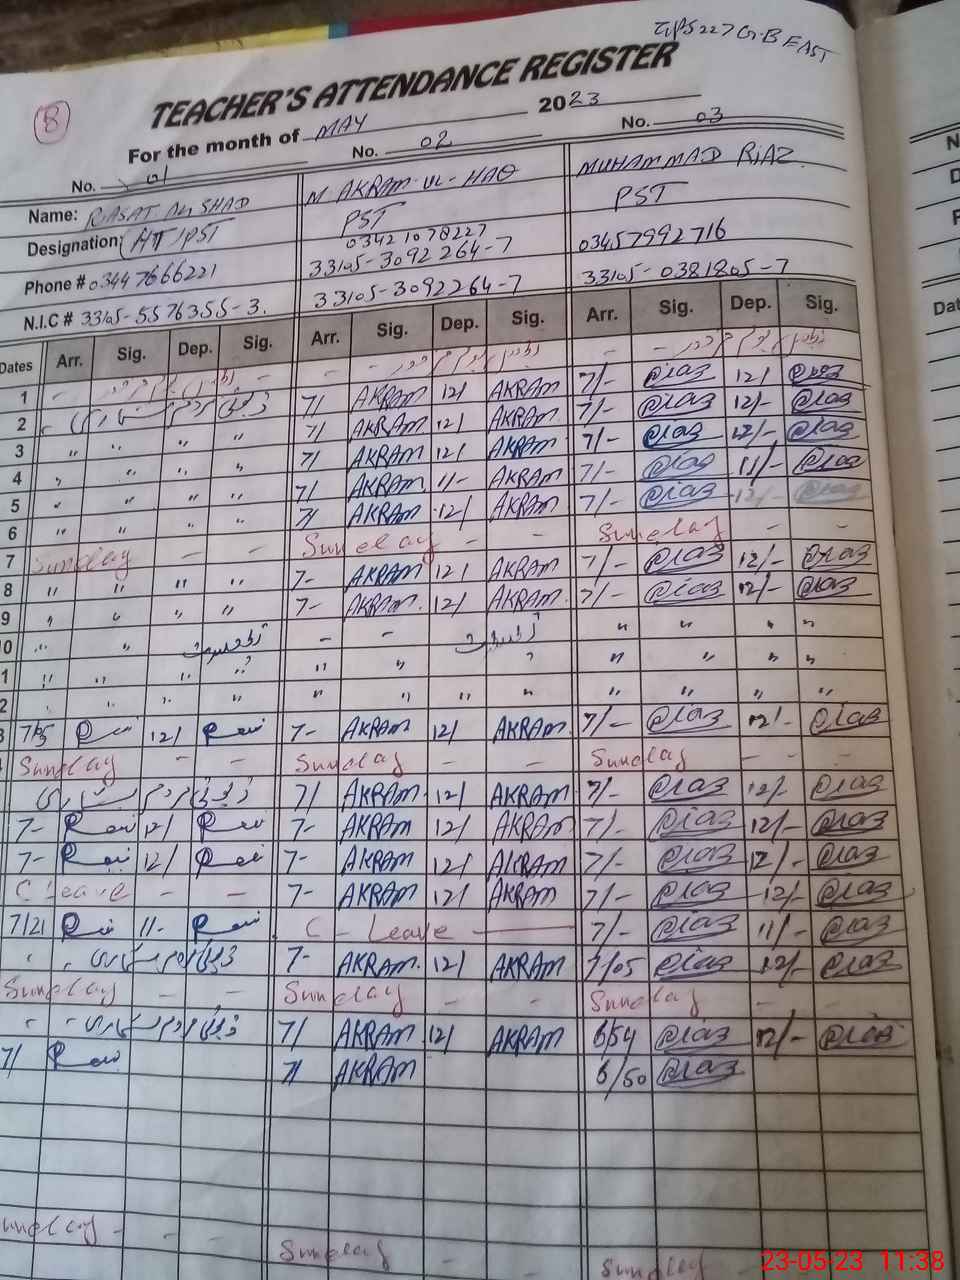 GPS 227 G.B EAST
8
TEACHER'S ATTENDANCE REGISTER
For the month of MAY 2023
No. 01 No. 02 No. 03
Name: RIASAT ALI SHAD M AKRAM-UL-HAQ MUHAMMAD RIAZ
Designation HT/PST PST PST
Phone # 03447666221 03421078227 03457992716
33105-3092264-7
N.I.C # 33105-5576355-3. 33105-3092264-7 33105-0381805-7
Dates Arr. Sig. Dep. Sig. Arr. Sig. Dep. Sig. Arr. Sig. Dep. Sig.
1 - - - - - -
2 ڈیوٹی مردم شماری 7/ AKRAM 12/ AKRAM 7/- Riaz 12/ Riaz
3 " " " " 7/ AKRAM 12/ AKRAM 7/- Riaz 12/- Riaz
4 " " " " 7/ AKRAM 12/ AKRAM 7/- Riaz 12/- Riaz
5 " " " " 7/ AKRAM 11- AKRAM 7/- Riaz 11/- Riaz
6 " " " " 7/ AKRAM 12/ AKRAM 7/- Riaz 12/- Riaz
7 Sunday - - Sunday - - Sunday - -
8 " " " " 7- AKRAM 12/ AKRAM 7/- Riaz 12/- Riaz
9 " " " " 7- AKRAM. 12/ AKRAM. 7/- Riaz 12/- Riaz
10 " " تعطیلات - - تعطیلات " " " "
11 " " " " " " " " " " "
12 " " " " " " " " " " "
3 7/05 12/ 7- AKRAM 12/ AKRAM 7/- Riaz 12/- Riaz
Sunday - - Sunday - - Sunday - -
ڈیوٹی مردم شماری 7/ AKRAM 12/ AKRAM 7/- Riaz 12/- Riaz
7- 12/ 7- AKRAM 12/ AKRAM 7/- Riaz 12/- Riaz
7- 12/ 7- AKRAM 12/ AKRAM 7/- Riaz 12/- Riaz
C Leave - - 7- AKRAM 12/ AKRAM 7/- Riaz 12/- Riaz
7/21 11- C - Leave 7/- Riaz 11/- Riaz
" " ڈیوٹی مردم شماری 7- AKRAM. 12/ AKRAM 7/05 Riaz 12/- Riaz
Sunday - - Sunday - - Sunday - -
" " ڈیوٹی مردم شماری 7/ AKRAM 12/ AKRAM 6/54 Riaz 12/- Riaz
7/ 7/ AKRAM 6/50 Riaz
Sunday - - Sunday - - Sunday - -
23-05-23 11:38